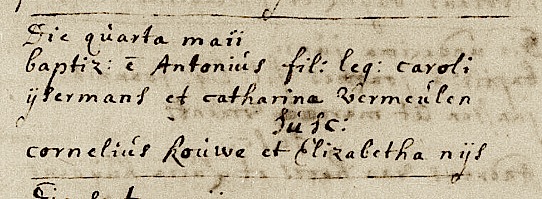 Die quarta maii
baptiz: ē Antonius fil: leg: caroli
ijsermans et catharina Vermeulen
Susc:
cornelius kouwe et Elizabetha nijs